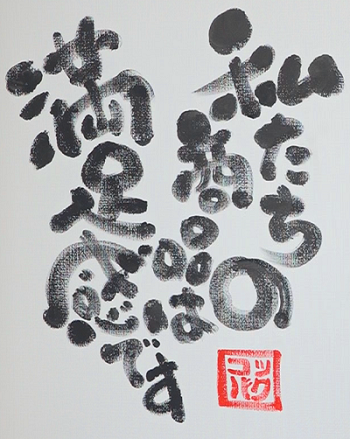 私たちの
商品は
満足感です